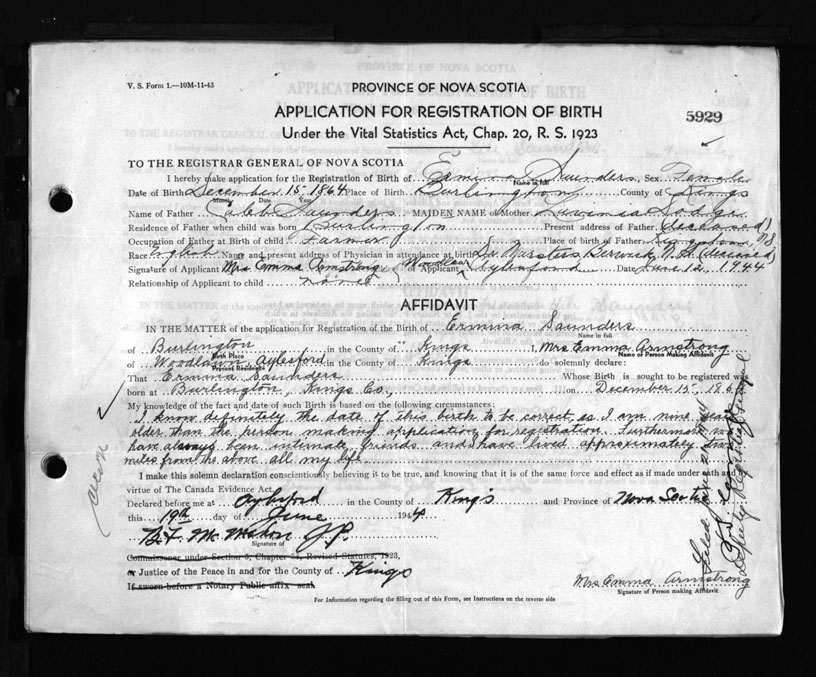 V. S. Form 1.—10M-11-43
PROVINCE OF NOVA SCOTIA
APPLICATION FOR REGISTRATION OF BIRTH
5929
Under the Vital Statistics Act, Chap. 20, R. S. 1923
TO THE REGISTRAR GENERAL OF NOVA SCOTIA
I hereby make application for the Registration of Birth of Ermina Saunders, Sex Female
Name in full
Date of Birth December 15, 1864 Place of Birth Burlington County of Kings
Month Day Year
Name of Father Caleb Saunders MAIDEN NAME of Mother Lavenia
Residence of Father when child was born Burlington Present address of Father (deceased)
Occupation of Father at Birth of child Farmer Place of birth of Father N.S.
Race English Name and present address of Physician in attendance at birth Dr. Berwick, N.S. (deceased)
Signature of Applicant Mrs Emma Armstrong Applicant Aylesford Date June 12, 1944
Relationship of Applicant to child none
AFFIDAVIT
IN THE MATTER of the application for Registration of the Birth of Ermina Saunders
Name in full
of Burlington in the County of Kings I, Mrs Emma Armstrong
Birth Place Name of Person Making Affidavit
of Woodlawn Aylesford in the County of Kings do solemnly declare:
Present Residence
That Ermina Saunders Whose Birth is sought to be registered was
born at Burlington, Kings Co., on December 15, 186
My knowledge of the fact and date of such Birth is based on the following circumstances:
I know definitely the date of this birth to be correct, as I am nine years
older than the person making application for registration. Furthermore we
have always been intimate friends and have lived approximately two
miles from the above all my life.
I make this solemn declaration conscientiously believing it to be true, and knowing that it is of the same force and effect as if made under oath and by
virtue of The Canada Evidence Act.
Declared before me at Aylesford in the County of Kings and Province of Nova Scotia
this 19th day of June 1944
B.F. McMahon J.P.
Signature of
Commissioner under Section 5, Chapter Revised Statutes, 1923,
or Justice of the Peace in and for the County of Kings
If sworn before a Notary Public affix seal
Mrs Emma Armstrong
Signature of Person making Affidavit
For Information regarding the filling out of this Form, see Instructions on the reverse side
Filed
Deputy Registrar General